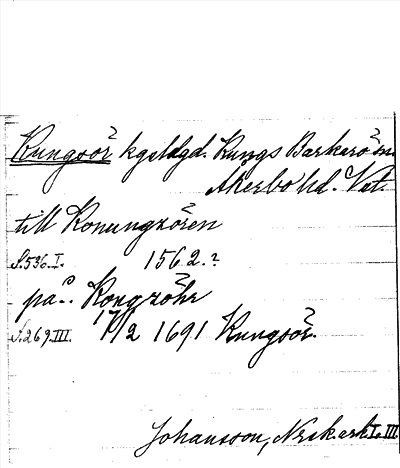 Kungsör kgsldgd. Kungs Barkarö sn.
Åkerbo hd. Vstm.
till Konungzören
S. 536. I. 1562.?
på.. Kongzöhr
S. 269. III. 17/2 1691 Kungsör.
Johansson, Nrik. ark. I. III